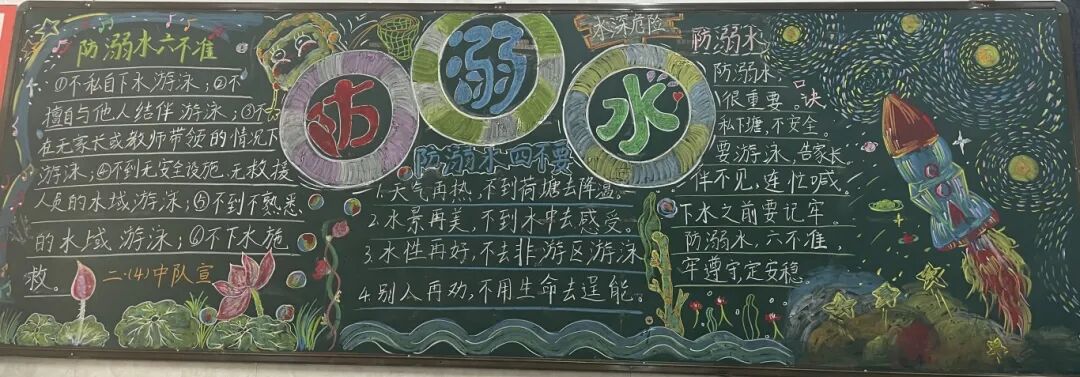 防溺水六不准
①不私自下水游泳；②不
擅自与他人结伴游泳；③不
在无家长或教师带领的情况下
游泳；④不到无安全设施、无救援
人员的水域游泳；⑤不到不熟悉
的水域游泳；⑥不下水施
救。
二·(4)中队宣
防溺水
防溺水四不要
1.天气再热，不到荷塘去降温。
2.水景再美，不到水中去感受。
3.水性再好，不去非游区游泳
4.别人再劝，不用生命去逞能。
水深危险
防溺水
防溺水
很重要。诀
私下塘，不安全。
要游泳，告家长，
伴不见，连忙喊。
下水之前要记牢。
防溺水，六不准，
牢遵守定安稳。